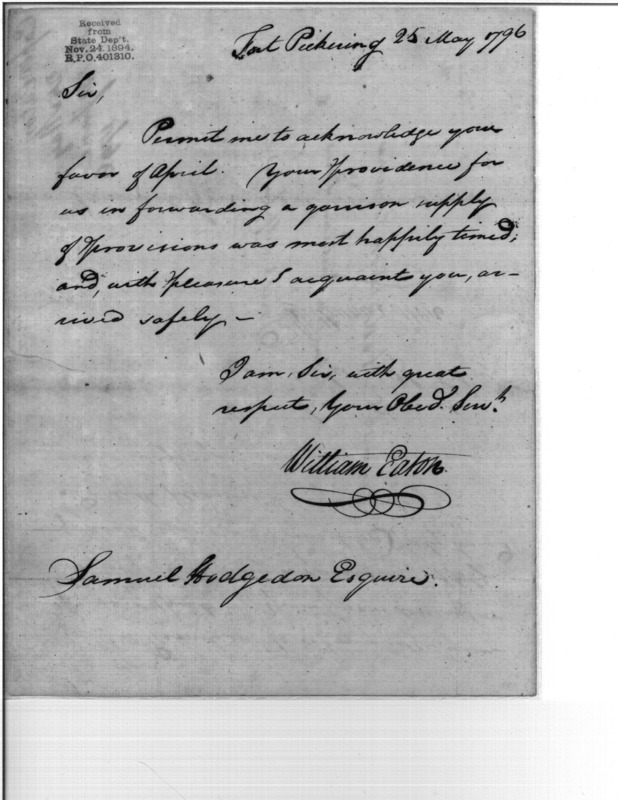 Received
from
State Dep't.
Nov. 24. 1894.
R.P.O. 401310.
Fort Pickering 25 May 1796
Sir,
Permit me to acknowledge your
favor of April. Your Providence for
us in forwarding a garrison supply
of Provisions was most happily timed;
and, with pleasure I acquaint you, ar-
rived safely –
I am, Sir, with great
respect, Your Obed.t Serv.t
William Eaton
Samuel Hodgedon Esquire.